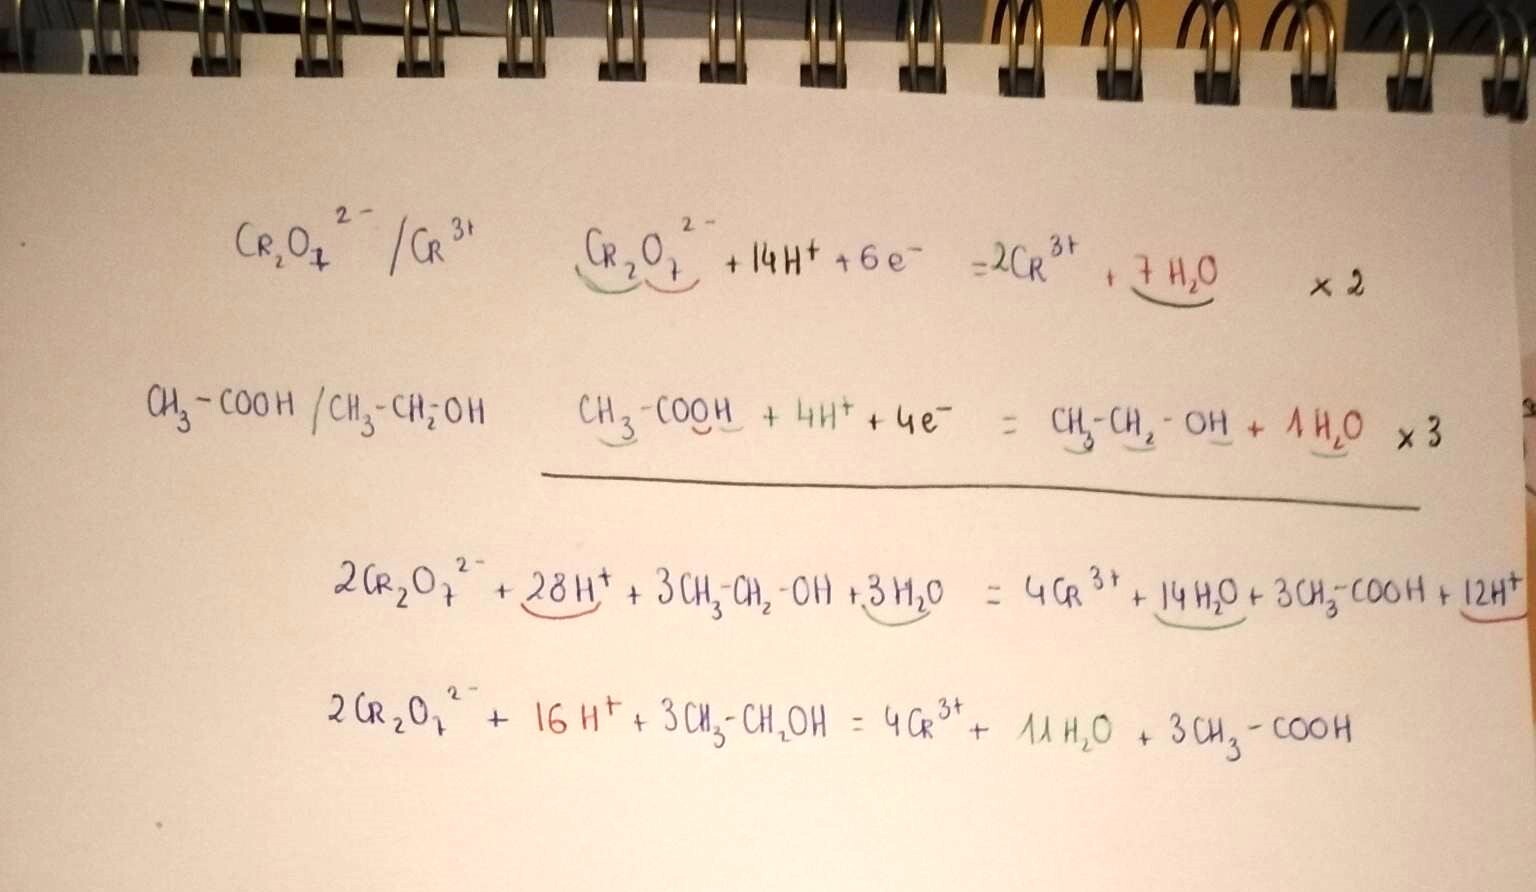 Cr₂O₇²⁻ / Cr³⁺ Cr₂O₇²⁻ + 14H⁺ + 6e⁻ = 2Cr³⁺ + 7H₂O x 2
CH₃-COOH / CH₃-CH₂-OH CH₃-COOH + 4H⁺ + 4e⁻ = CH₃-CH₂-OH + 1H₂O x 3
2Cr₂O₇²⁻ + 28H⁺ + 3CH₃-CH₂-OH + 3H₂O = 4Cr³⁺ + 14H₂O + 3CH₃-COOH + 12H⁺
2Cr₂O₇²⁻ + 16H⁺ + 3CH₃-CH₂OH = 4Cr³⁺ + 11H₂O + 3CH₃-COOH